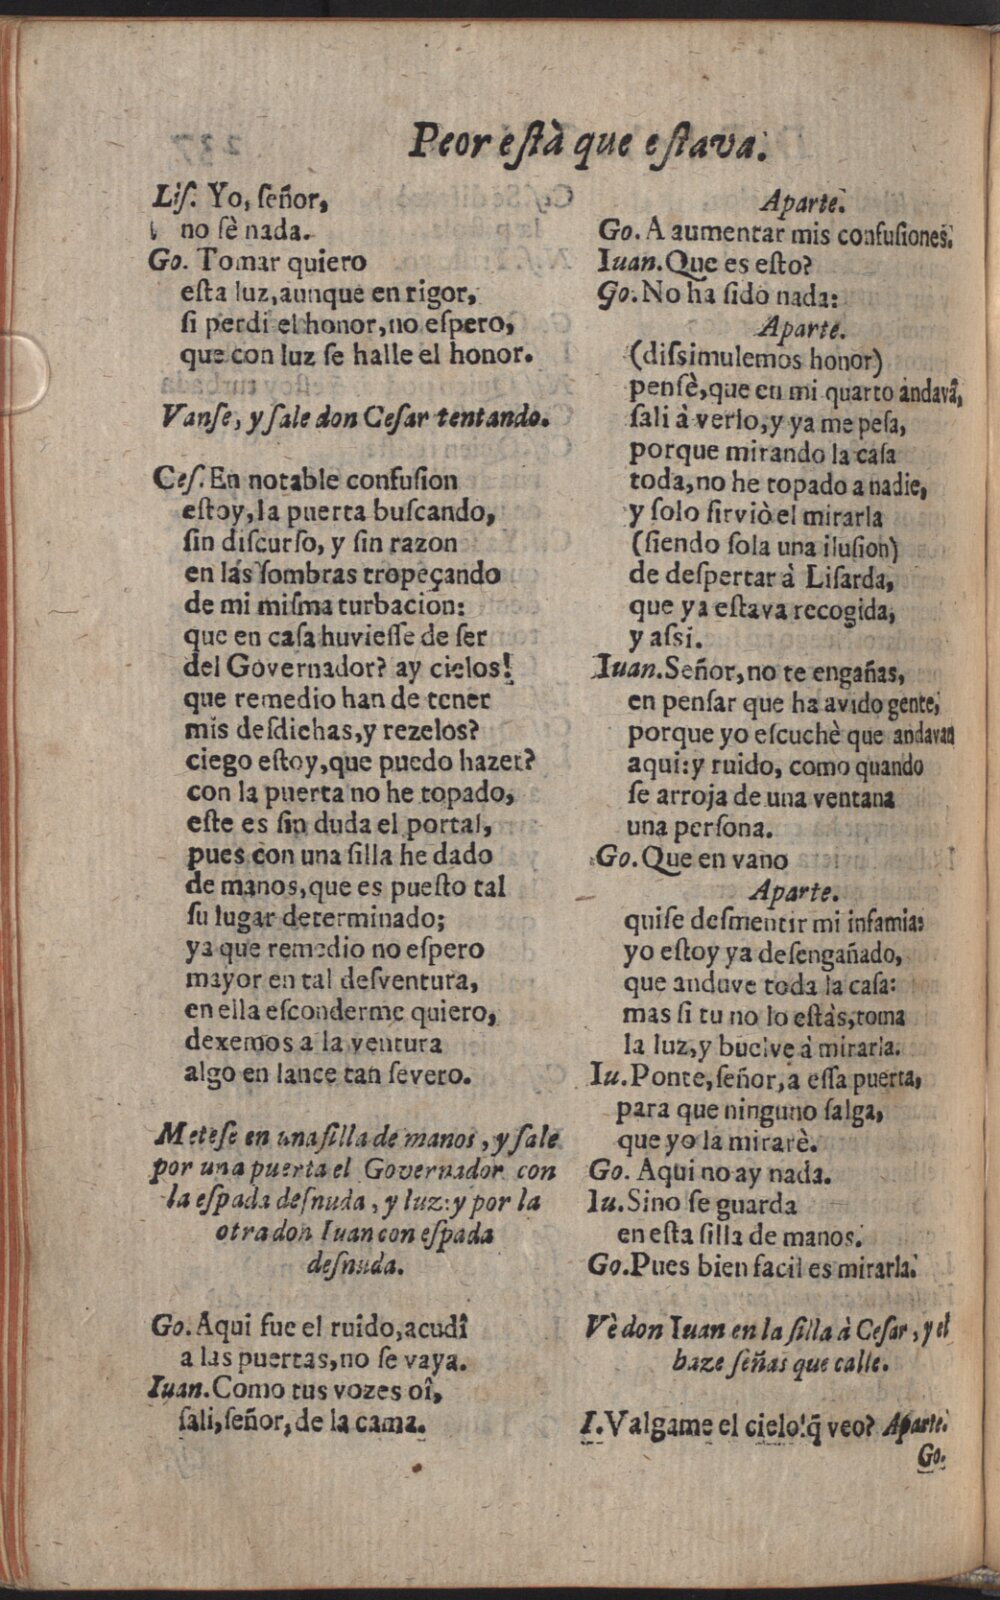 Peor està que estava.
Lis. Yo, señor,
no sè nada.
Go. Tomar quiero
esta luz, aunque en rigor,
si perdi el honor, no espero,
que con luz se halle el honor.
Vanse, y sale don Cesar tentando.
Ces. En notable confusion
estoy, la puerta buscando,
sin discurso, y sin razon
en las sombras tropeçando
de mi misma turbacion:
que en casa huviesse de ser
del Governador? ay cielos!
que remedio han de tener
mis desdichas, y rezelos?
ciego estoy, que puedo hazer?
con la puerta no he topado,
este es sin duda el portal,
pues con una silla he dado
de manos, que es puesto tal
su lugar determinado;
ya que remedio no espero
mayor en tal desventura,
en ella esconderme quiero,
dexemos a la ventura
algo en lance tan severo.
Metese en una silla de manos, y sale
por una puerta el Governador con
la espada desnuda, y luz: y por la
otra don Iuan con espada
desnuda.
Go. Aqui fue el ruido, acudî
a las puertas, no se vaya.
Iuan. Como tus vozes oî,
sali, señor, de la cama.
Aparte.
Go. A aumentar mis confusiones.
Iuan. Que es esto?
Go. No ha sido nada:
Aparte.
(dissimulemos honor)
pensè, que en mi quarto andavã,
sali à verlo, y ya me pesa,
porque mirando la casa
toda, no he topado a nadie,
y solo sirviò el mirarla
(siendo sola una ilusion)
de despertar à Lisarda,
que ya estava recogida,
y assi.
Iuan. Señor, no te engañas,
en pensar que ha avido gente,
porque yo escuchè que andavan
aqui: y ruido, como quando
se arroja de una ventana
una persona.
Go. Que en vano
Aparte.
quise desmentir mi infamia:
yo estoy ya desengañado,
que anduve toda la casa:
mas si tu no lo estàs, toma
la luz, y buelve à mirarla.
Iu. Ponte, señor, a essa puerta,
para que ninguno salga,
que yo la mirarè.
Go. Aqui no ay nada.
Iu. Sino se guarda
en esta silla de manos.
Go. Pues bien facil es mirarla.
Vè don Iuan en la silla à Cesar, y el
haze señas que calle.
I. Valgame el cielo! q̃ veo? Aparte.
Go.